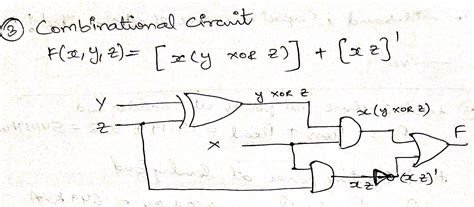 ③ Combinational circuit
F(x, y, z) = [x(y xor z)] + [xz]'
y xor z
Y
x(y xor z)
Z
F
X
xz
(xz)'.